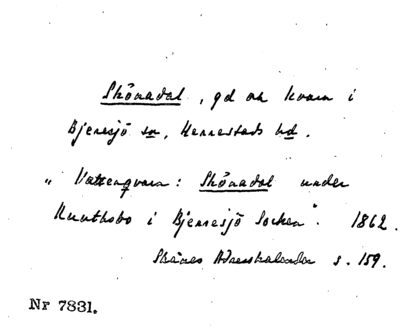 Skönadal, gd och kvarn i
Bjeresjö sn, Herrestads hd.
"Vattenqvarn: Skönadal under
Ruuthsbo i Bjeresjö Socken". 1862.
Skånes Adresskalender s. 159.
Nr 7831.